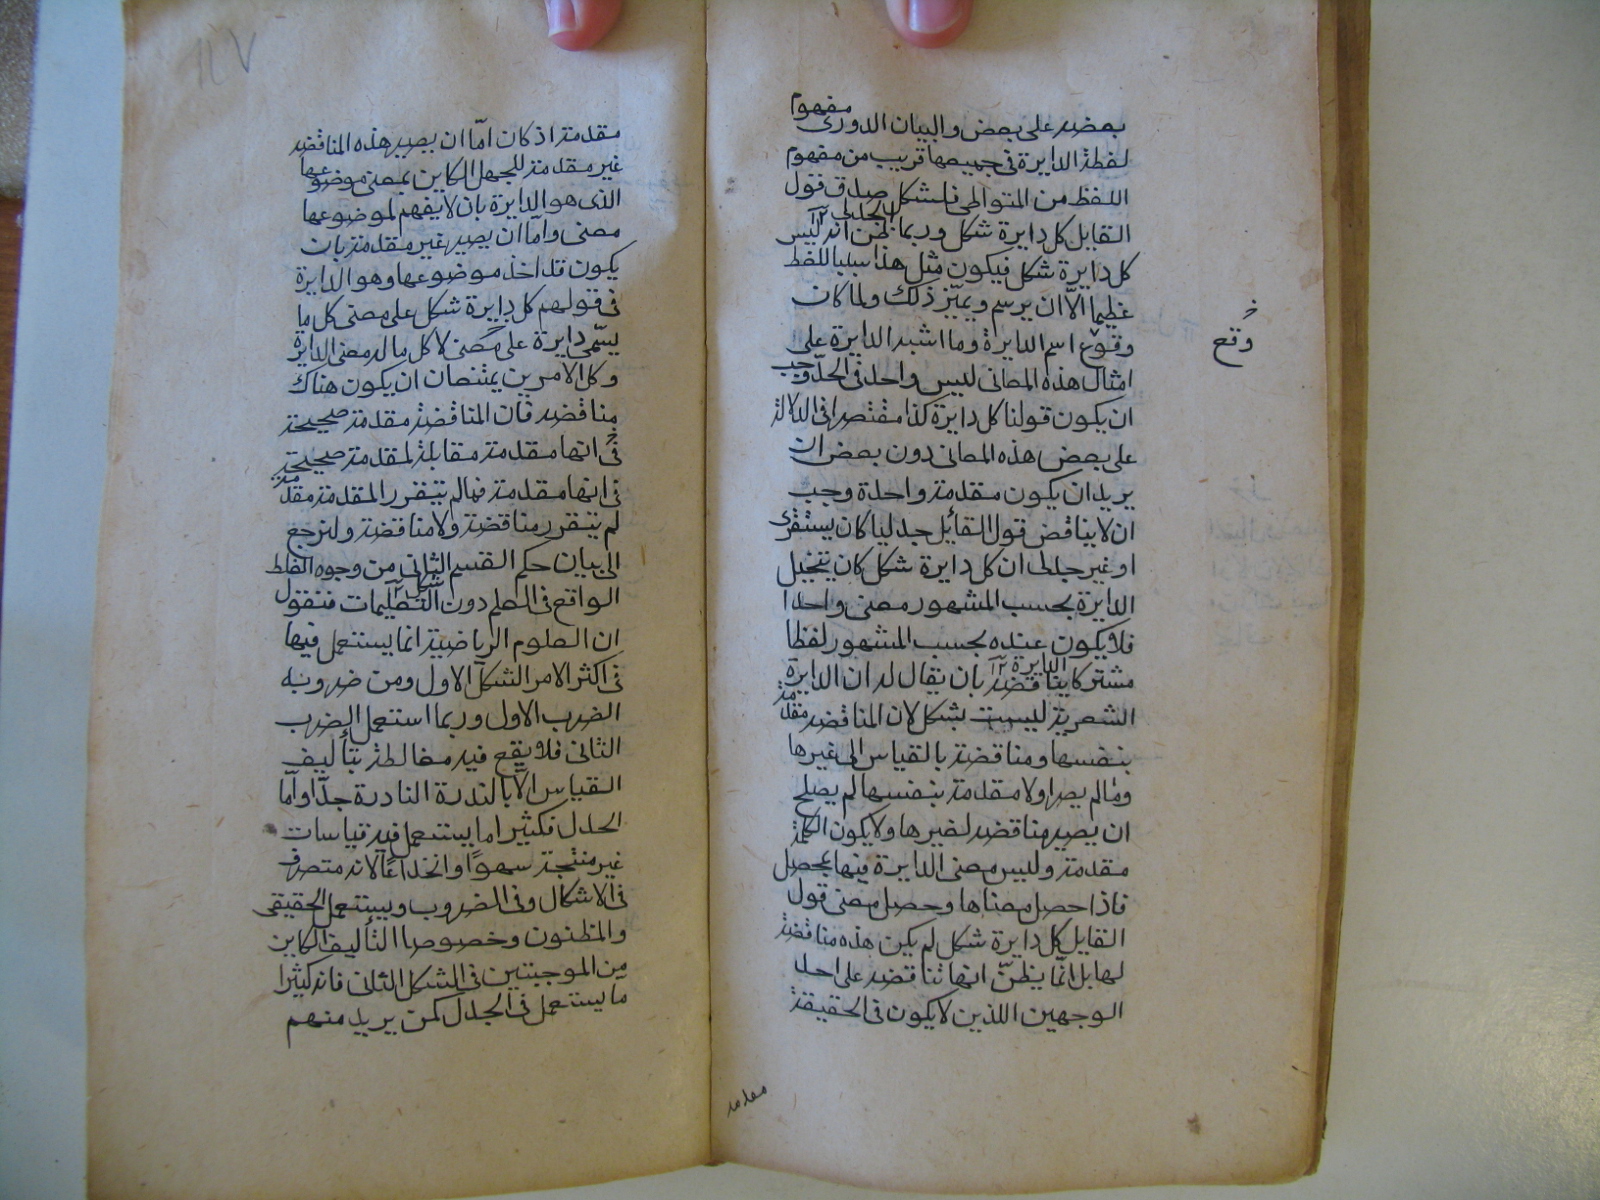 بعضه على بعض والبيان الدورى مفهوم
لفظة الدايرة فى جميعها قريب من مفهوم
اللفظ من المتواطى فلشكل صدق قول
القايل كل دايرة شكل وربما ظن الجدلى ١٢ انه ليس
كل دايرة شكل فيكون مثل هذا سببا للغط
عظيما الّا ان يرسم ويميّز ذلك ولما كان
وقوع اسم الدايرة وما اشبه الدايرة على
وُقع خ
امثال هذه المعانى ليس واحد فى الحدّ وجب
ان يكون قولنا كل دايرة كذا مقتصرا فى الدلالة
على بعض هذه المعانى دون بعض ان
يريد ان يكون مقدمة واحدة وجب
ان لا يناقض قول القائل جدليا كان يستقرى
او غير جدلى ان كل دايرة شكل كان يتخيل
الدايرة بحسب المشهور معنى واحدا
فلا يكون عنده بحسب المشهور لفظا
مشتركا يناقضه بان يقال له ان الدايرة
الدايرة ١٢
الشعرية ليست بشكل لان المناقضه مقدمة
بنفسها ومناقضة بالقياس الى غيرها
وما لم يصر اولا مقدمة بنفسها لم يصلح
ان يصير مناقضه لغيرها ولا يكون الكلمة
مقدمة وليس معنى الدايرة فيها بمحصل
فاذا حصل معناها وحصل معنى قول
القايل كل دايرة شكل لم يكن هذه مناقضة
لها بل انّما يظنّ انها تناقضه على احد
الوجهين اللذين لا يكون فى الحقيقة
مقدمه
١١٧
مقدمة اذ كان امّا ان يصير هذه المناقضه
غير مقدمة للجهل الكاين بمعنى موضوعها
الذى هو الدايرة بان لا يفهم لموضوعها
معنى وامّا ان يصير غير مقدمة بان
يكون قد اخذ موضوعها وهو الدايرة
فى قولهم كل دايرة شكل على معنى كل ما
يسّمى دايرة على معنى لا كل ما له معنى الدايرة
وكل الامرين يمنعان ان يكون هناك
مناقضه فان المناقضة مقدمة صحيحة
فى انها مقدمة مقابلة لمقدمة صحيحة
فى انها مقدمة فما لم يتقرر المقدمة مقدمة
لم يتقرر مناقضة ولا مناقضة ولنرجع
الى بيان حكم القسم الثانى من وجوه الغلط
الواقع فى العلم دون التعليمات فنقول
ان العلوم الرياضية انما يستعمل فيها
فى اكثر الامر الشكل الاول ومن ضروبه
الضرب الاول وربما استعمل الضرب
الثانى فلا يقع فيه مغالطة بتأليف
القياس الّا بالندرة النادرة جدّا وامّا
الجدل فكثيرا ما يستعمل فيه قياسات
غير منتجة سهوًا وانخداعًا لانه متصرف
فى الاشكال وفى الضروب ويستعمل الحقيقى
والمظنون وخصوصا التأليف الكاين
من الموجبتين فى الشكل الثانى فانه كثيرا
ما يستعمل فى الجدل كمن يريد منهم